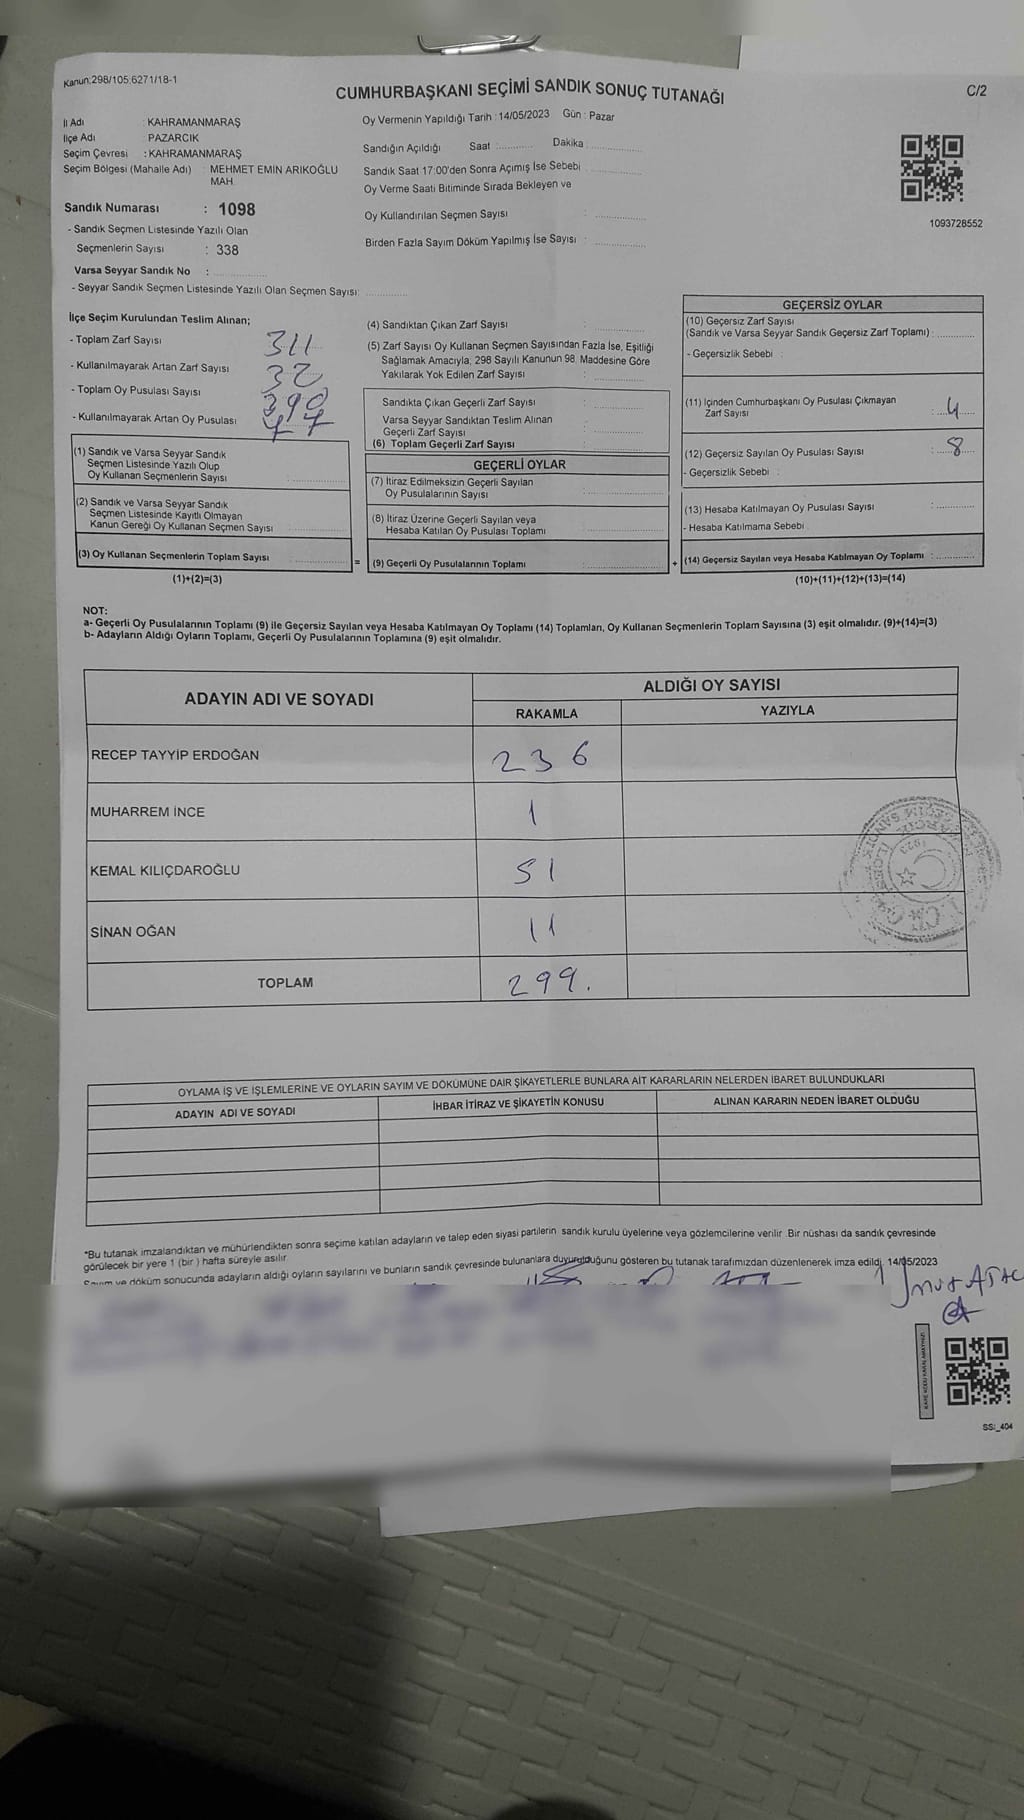 Kanun:298/105;6271/18-1
CUMHURBAŞKANI SEÇİMİ SANDIK SONUÇ TUTANAĞI
C/2
İl Adı : KAHRAMANMARAŞ
İlçe Adı : PAZARCIK
Seçim Çevresi : KAHRAMANMARAŞ
Seçim Bölgesi (Mahalle Adı) : MEHMET EMİN ARIKOĞLU
MAH.
Sandık Numarası : 1098
- Sandık Seçmen Listesinde Yazılı Olan
Seçmenlerin Sayısı : 338
Varsa Seyyar Sandık No :
- Seyyar Sandık Seçmen Listesinde Yazılı Olan Seçmen Sayısı:
Oy Vermenin Yapıldığı Tarih : 14/05/2023 Gün : Pazar
Sandığın Açıldığı Saat : Dakika
Sandık Saat 17:00'den Sonra Açımış İse Sebebi
Oy Verme Saati Bitiminde Sırada Bekleyen ve
Oy Kullandırılan Seçmen Sayısı :
Birden Fazla Sayım Döküm Yapılmış İse Sayısı :
1093728552
İlçe Seçim Kurulundan Teslim Alınan;
- Toplam Zarf Sayısı 311
- Kullanılmayarak Artan Zarf Sayısı
- Toplam Oy Pusulası Sayısı
- Kullanılmayarak Artan Oy Pusulası
(1) Sandık ve Varsa Seyyar Sandık
Seçmen Listesinde Yazılı Olup
Oy Kullanan Seçmenlerin Sayısı :
(2) Sandık ve Varsa Seyyar Sandık
Seçmen Listesinde Kayıtlı Olmayan
Kanun Gereği Oy Kullanan Seçmen Sayısı :
(3) Oy Kullanan Seçmenlerin Toplam Sayısı :
(1)+(2)=(3)
(4) Sandıktan Çıkan Zarf Sayısı :
(5) Zarf Sayısı Oy Kullanan Seçmen Sayısından Fazla İse, Eşitliği
Sağlamak Amacıyla; 298 Sayılı Kanunun 98. Maddesine Göre
Yakılarak Yok Edilen Zarf Sayısı :
Sandıkta Çıkan Geçerli Zarf Sayısı :
Varsa Seyyar Sandıktan Teslim Alınan
Geçerli Zarf Sayısı :
(6) Toplam Geçerli Zarf Sayısı :
GEÇERLİ OYLAR
(7) İtiraz Edilmeksizin Geçerli Sayılan
Oy Pusulalarının Sayısı :
(8) İtiraz Üzerine Geçerli Sayılan veya
Hesaba Katılan Oy Pusulası Toplamı :
= (9) Geçerli Oy Pusulalarının Toplamı :
GEÇERSİZ OYLAR
(10) Geçersiz Zarf Sayısı
(Sandık ve Varsa Seyyar Sandık Geçersiz Zarf Toplamı) :
- Geçersizlik Sebebi :
(11) İçinden Cumhurbaşkanı Oy Pusulası Çıkmayan
Zarf Sayısı : 4
(12) Geçersiz Sayılan Oy Pusulası Sayısı : 8
- Geçersizlik Sebebi :
(13) Hesaba Katılmayan Oy Pusulası Sayısı :
- Hesaba Katılmama Sebebi :
+ (14) Geçersiz Sayılan veya Hesaba Katılmayan Oy Toplamı :
(10)+(11)+(12)+(13)=(14)
NOT:
a- Geçerli Oy Pusulalarının Toplamı (9) ile Geçersiz Sayılan veya Hesaba Katılmayan Oy Toplamı (14) Toplamları, Oy Kullanan Seçmenlerin Toplam Sayısına (3) eşit olmalıdır. (9)+(14)=(3)
b- Adayların Aldığı Oyların Toplamı, Geçerli Oy Pusulalarının Toplamına (9) eşit olmalıdır.
ADAYIN ADI VE SOYADI
ALDIĞI OY SAYISI
RAKAMLA YAZIYLA
RECEP TAYYİP ERDOĞAN 236
MUHARREM İNCE 1
KEMAL KILIÇDAROĞLU 51
SİNAN OĞAN 11
TOPLAM 299.
OYLAMA İŞ VE İŞLEMLERİNE VE OYLARIN SAYIM VE DÖKÜMÜNE DAİR ŞİKAYETLERLE BUNLARA AİT KARARLARIN NELERDEN İBARET BULUNDUKLARI
ADAYIN ADI VE SOYADI İHBAR İTİRAZ VE ŞİKAYETİN KONUSU ALINAN KARARIN NEDEN İBARET OLDUĞU
*Bu tutanak imzalandıktan ve mühürlendikten sonra seçime katılan adayların ve talep eden siyasi partilerin sandık kurulu üyelerine veya gözlemcilerine verilir. Bir nüshası da sandık çevresinde
görülecek bir yere 1 (bir ) hafta süreyle asılır.
Sayım ve döküm sonucunda adayların aldığı oyların sayılarını ve bunların sandık çevresinde bulunanlara duyurulduğunu gösteren bu tutanak tarafımızdan düzenlenerek imza edildi. 14/05/2023
SS:_404